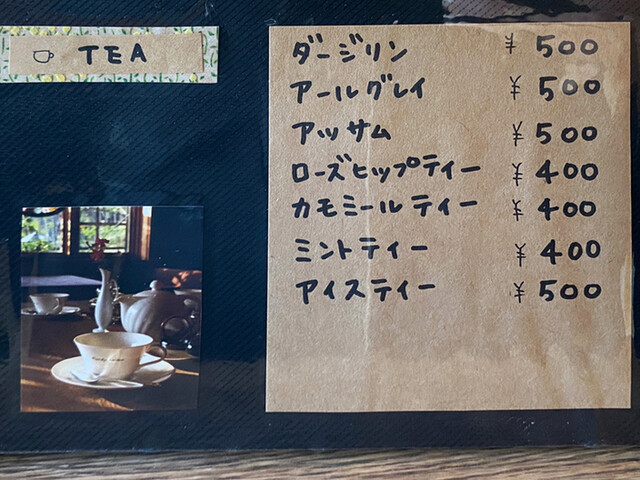 TEA
ダージリン ¥500
アールグレイ ¥500
アッサム ¥500
ローズヒップティー ¥400
カモミールティー ¥400
ミントティー ¥400
アイスティー ¥500